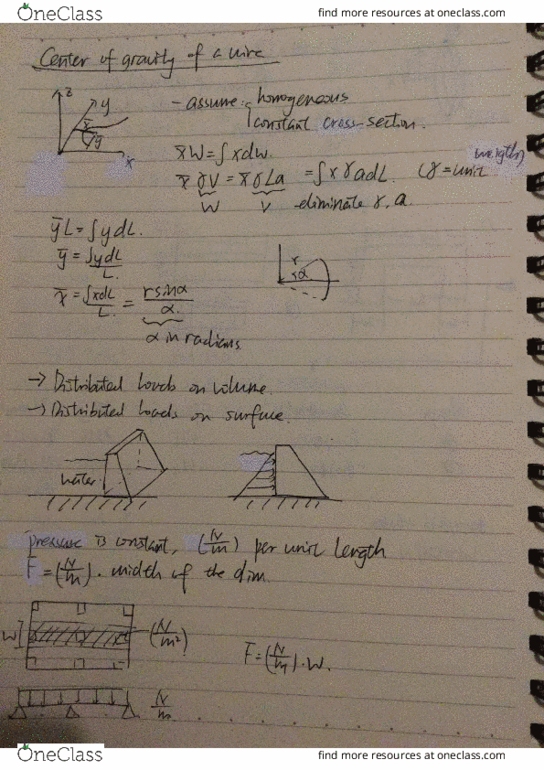 OneClass
find more resources at oneclass.com
Center of gravity of a wire
z
y
x
x̄
ȳ
- assume: homogeneous
constant cross-section.
x̄W = ∫xdw.
x̄γV = x̄γLa = ∫xγadL. (γ = unit weight)
W V -eliminate γ, a.
ȳL = ∫ydL.
ȳ = ∫ydL / L.
r
α
x̄ = ∫xdL / L. = rsinα / α.
α in radians
-> Distributed Loads on volume.
-> Distributed Loads on surface.
water
pressure is constant, (N/m) per unit length
F = (N/m) . width of the dim
W
(N/m²)
F = (N/m) . W.
N/m
OneClass
find more resources at oneclass.com